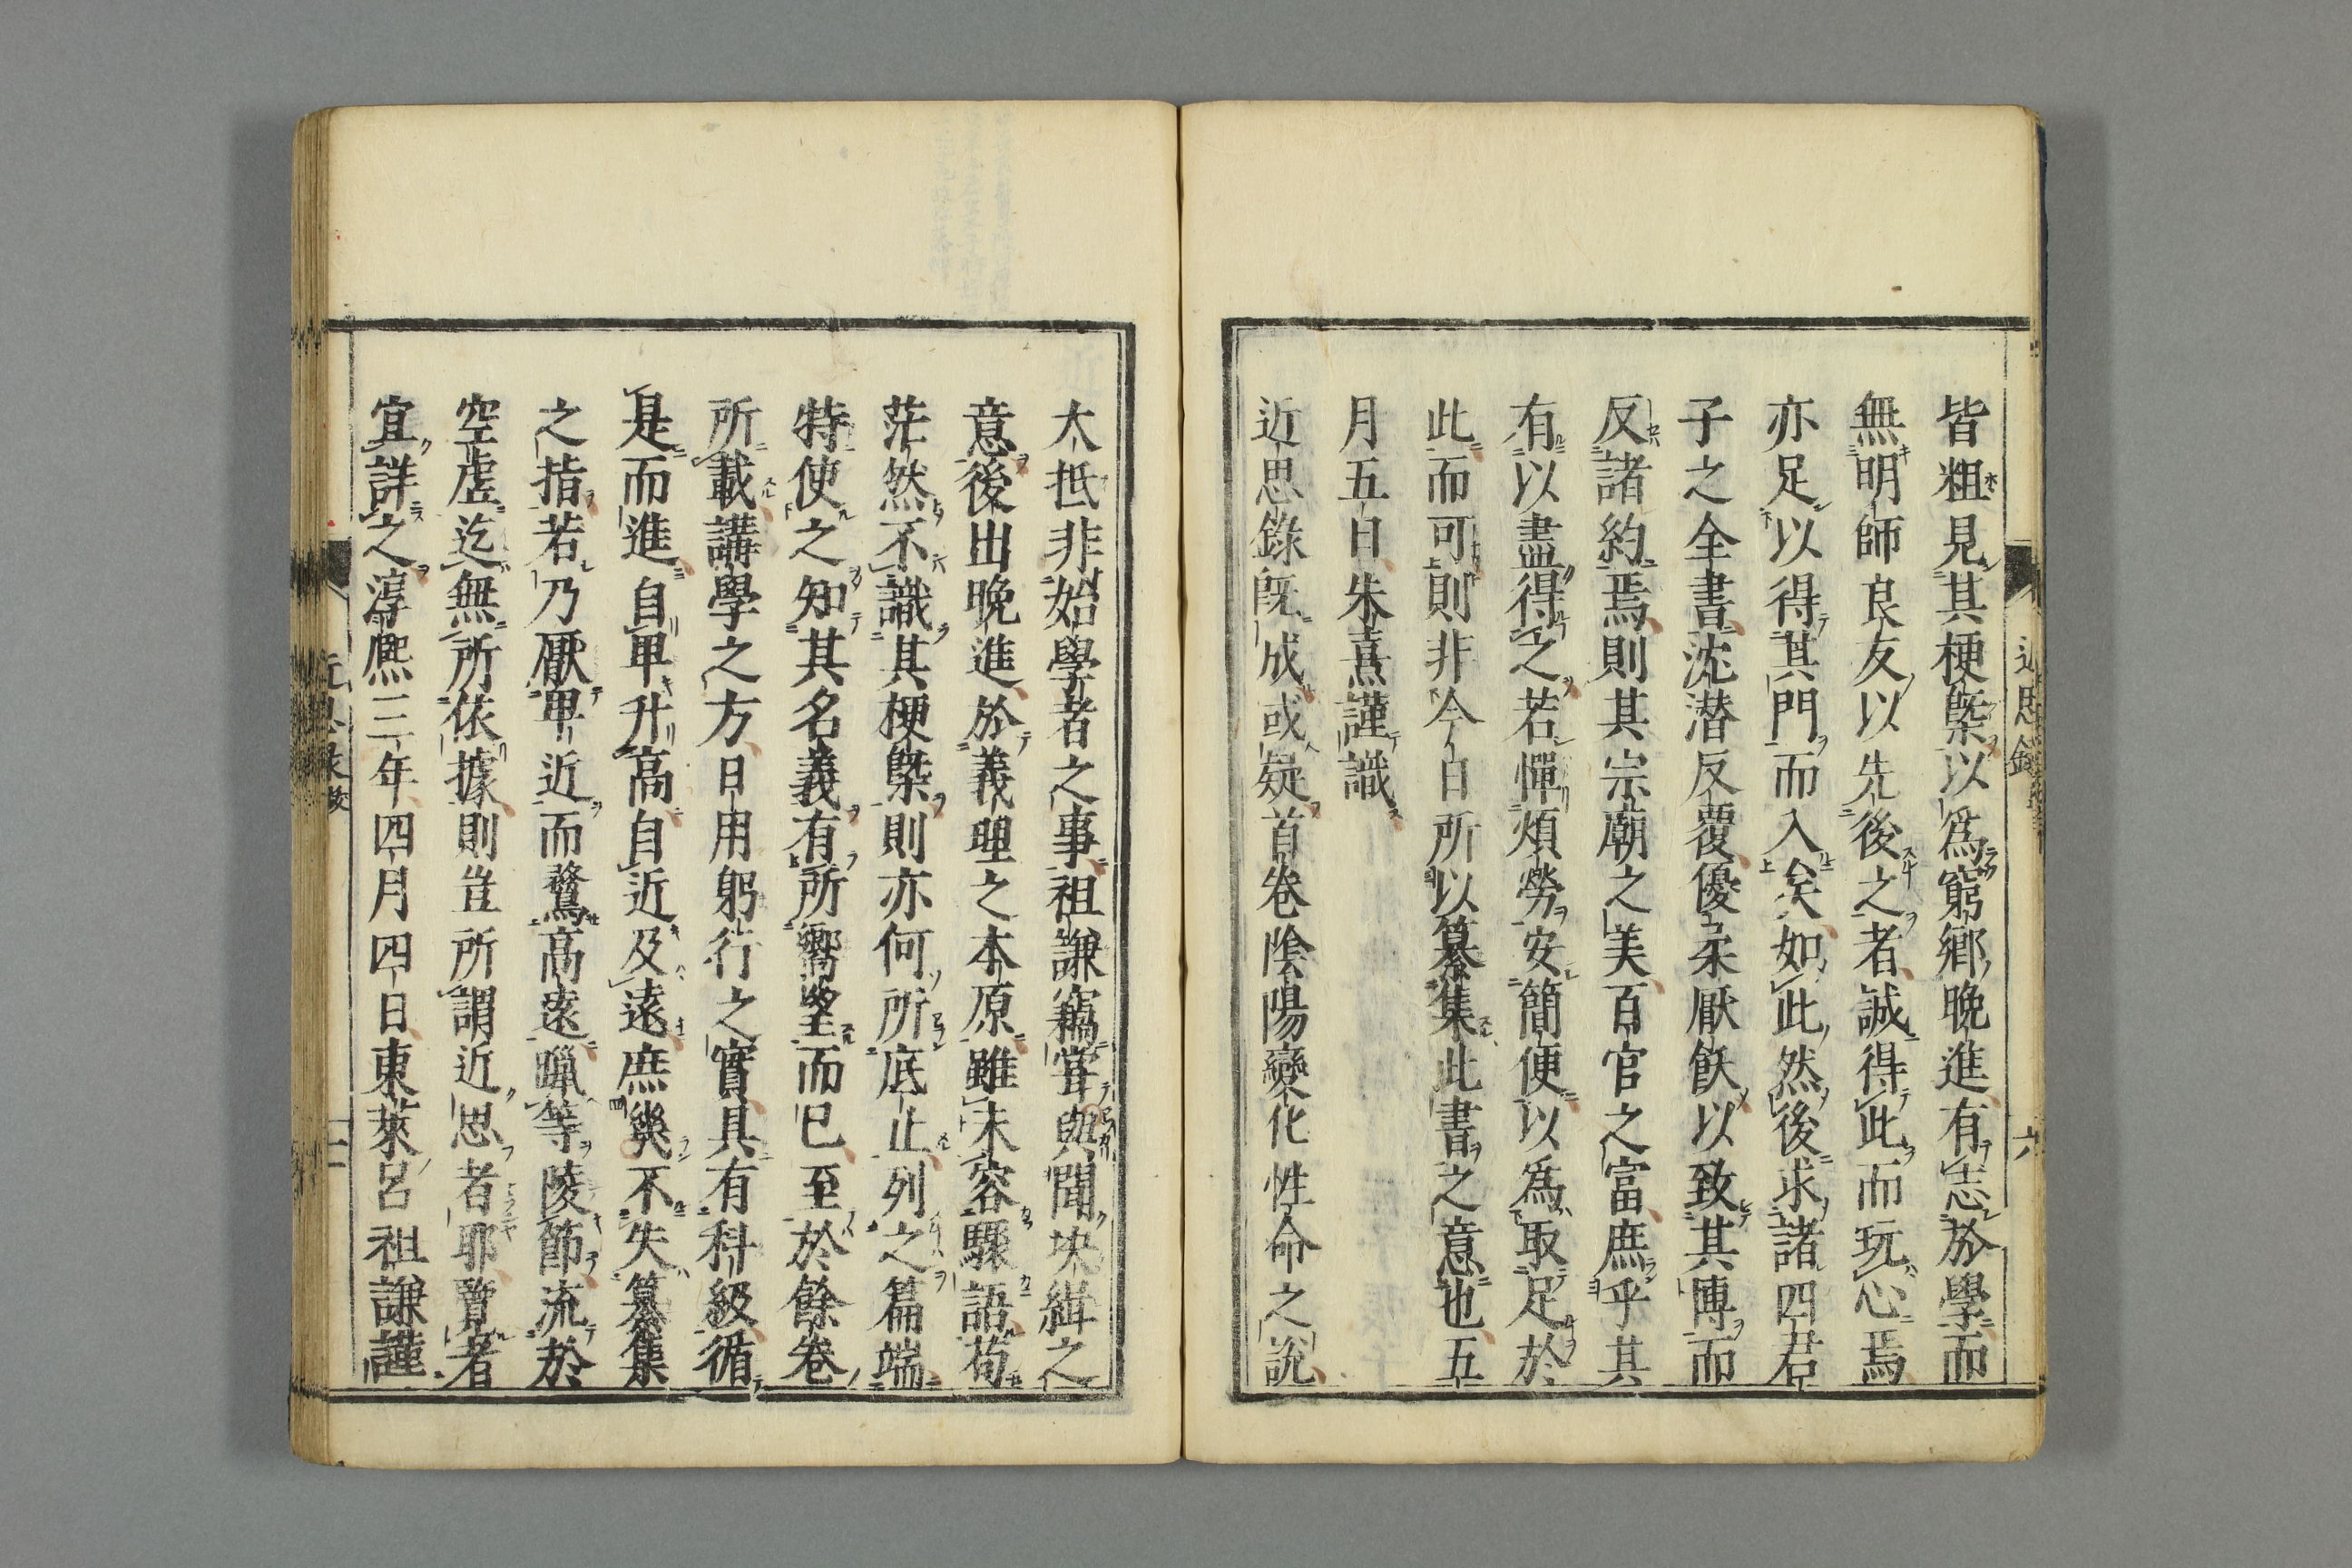 皆粗見其梗槩以為窮郷晩進有志於學而
無明師良友以先後之者誠得此而玩心焉
亦足以得其門而入矣如此然後求諸四君
子之全書沈潜反覆優柔厭飫以致其博而
反諸約焉則其宗廟之美百官之富庶乎其
有以盡得之若憚煩勞安簡便以為取足於
此而可則非今日所以纂集此書之意也五
月五日朱熹謹識
近思錄既成或疑首巻陰陽變化性命之說
大抵非始學者之事祖謙竊甞與聞次緝之
意後出晩進於義理之本原雖未容驟語苟
茫然不識其梗槩則亦何所底止列之篇端
特使之知其名義有所嚮望而已至於餘巻
所載講學之方日用躬行之實具有科級循
是而進自卑升高自近及遠庶㡬不失纂集
之指若乃厭卑近而騖高遠躐等陵節流於
空虚迄無所依據則豈所謂近思者耶覽者
宜詳之淳熈三年四月四日東萊呂祖謙謹